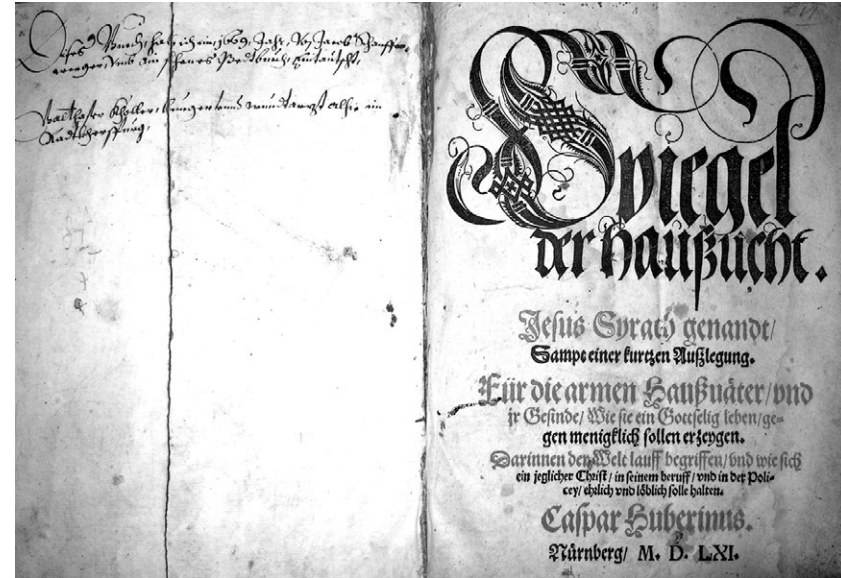 Dises Buech, hab ich im, 1669, Jahr, Vo, Jacob
umb ein schenes Bedtbuech, eintauscht,
Balthasar Kheller, wundtarzt alhie in
Spiegel
der Haußzucht.
Jesus Syrach genandt/
Sampt einer kurtzen Außlegung.
Für die armen Haußuäter/ vnd
jr Gesinde/ Wie sie ein Gottselig leben/ ge-
gen menigklich sollen erzeygen.
Darinnen der Welt lauff begriffen/ vnd wie sich
ein jeglicher Christ/ in seinem beruff/ vnd in der Poli-
cey/ ehrlich vnd löblich solle halten.
Caspar Huberinus.
Nürnberg/ M. D. LXI.